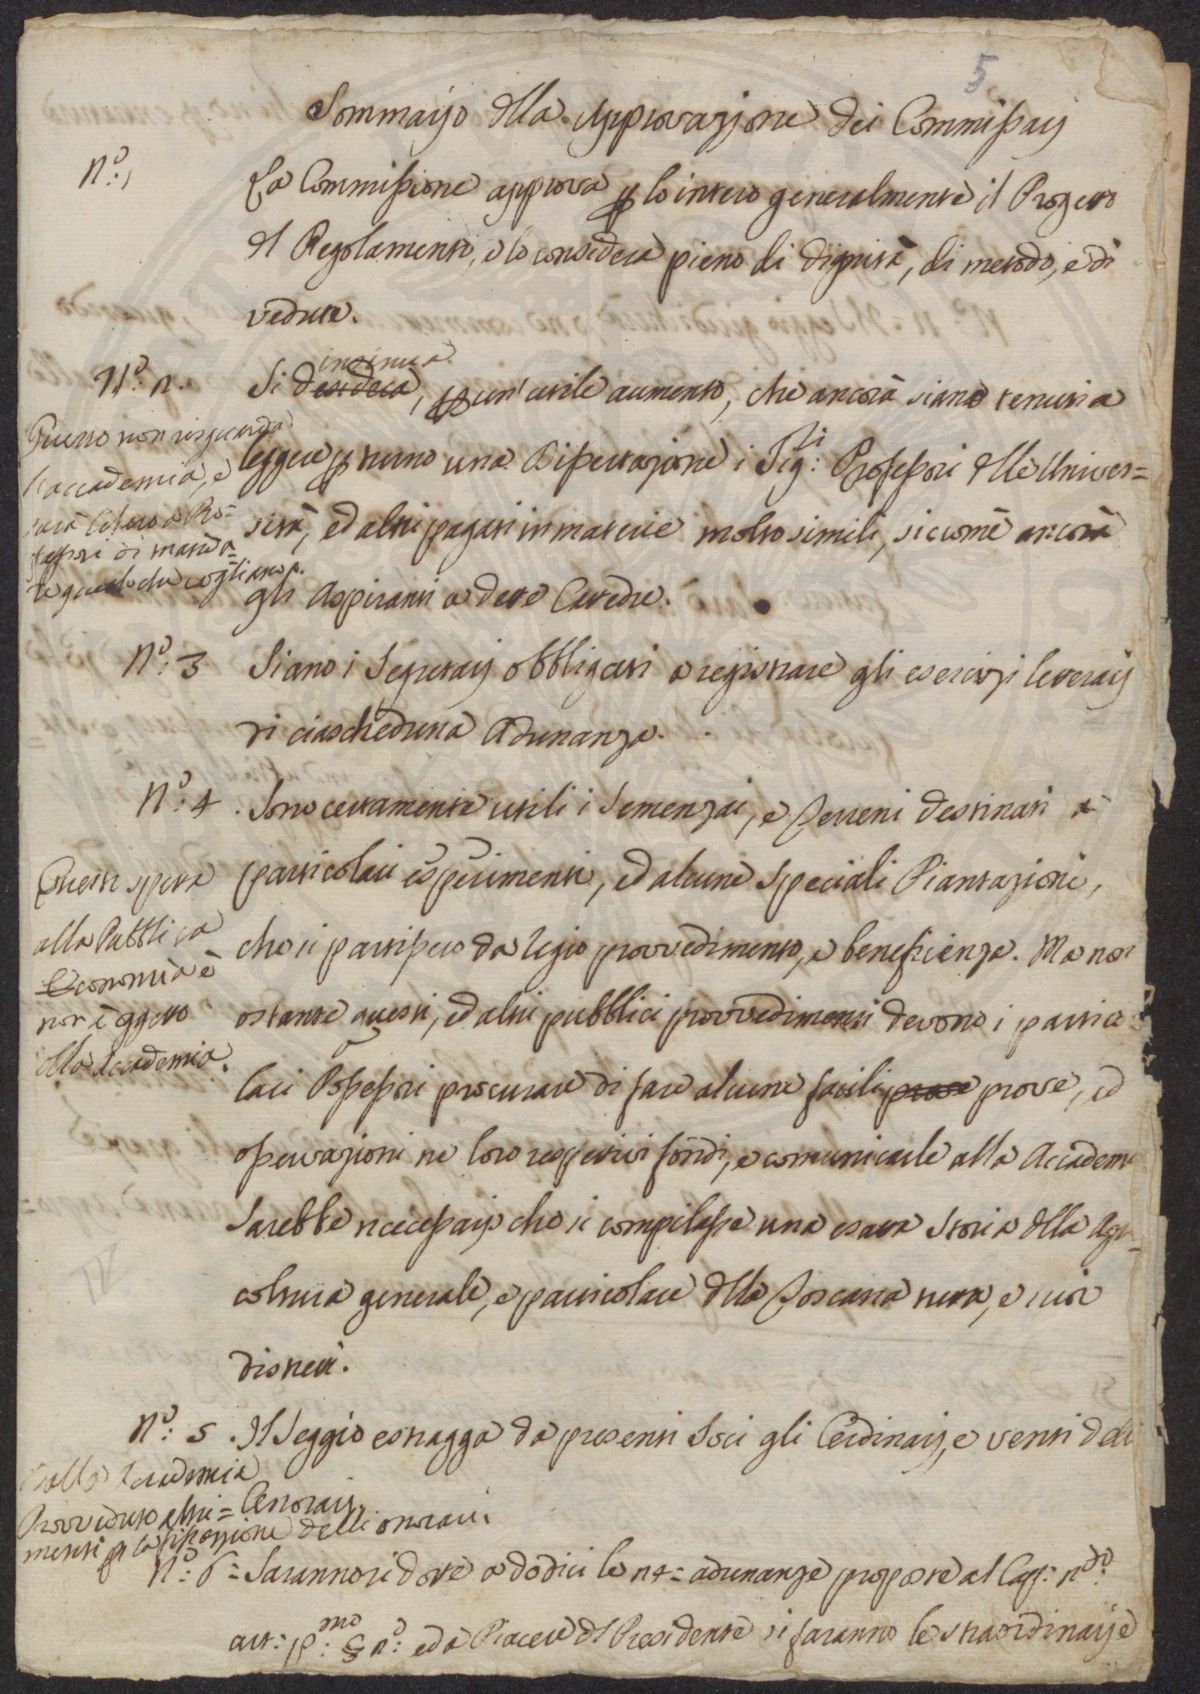 5
Sommario della Approvazione dei Commissarij
N.° 1
La Commissione approva p lo intero generalmente il Progetto
del Regolamento, e lo considera pieno di dignità, di metodo, e di
vedute.
N.° 2.
insinua
Si desidera, p un'utile aumento, che ancora siano tenuti a
leggere p turno una Dissertazione i Sig:ri Professori delle Univer=
sità, ed altri pagati in materie molto simili, siccome ancora
gli Aspiranti a dette Catedre.
Questo non risguarda
l'accademia, e
sarà libero a Pro=
fessori di manda=
re quello che vogliano.
N.° 3 Siano i Segretarij obbligati a registrare gli esercizi letterarij
di ciascheduna Adunanza.
N.° 4. Sono certamente utili i Semenzai, e Terreni destinati a
particolari esperimenti, ed alcune speciali Piantazioni,
che si partissero da regio provvedimento, e beneficienza. Ma non
ostante questi, ed altri pubblici provvedimenti devono i partico=
lari Possessori procurare di fare alcune facili prove prove, ed
osservazioni ne loro respettivi fondi, e comunicarle alla Accademia
Sarebbe necessario che si compilasse una esatta Storia della Agri=
coltura generale, e particolare della Toscana tutta, e suoi
distretti.
Questi spetta
alla Pubblica
Economia e
non è oggetto
della Accademia.
N.° 5. Il Seggio estragga da presenti Soci gli Ordinarij, e venti deli
Onorarij.
Dalla Accademia
Provveduto altri=
menti p la fissazione delli onorarij.
N.° 6= Saranno ridotte a dodici le 24= adunanze proposte al Cap: 2do:
art: p:mo § 2°: ed a Piacere del Presidente si faranno le straordinarie